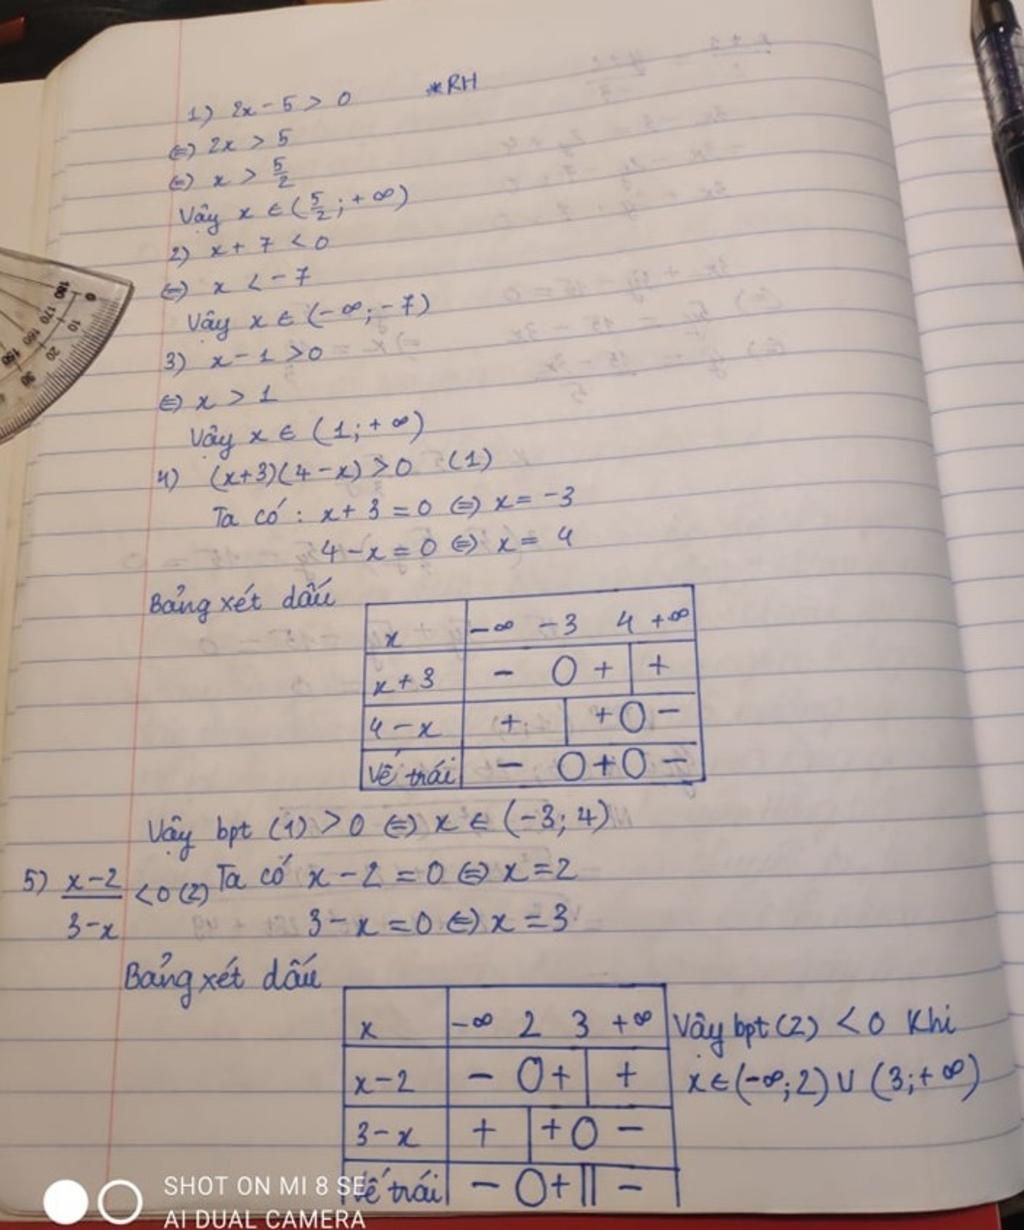 1) 2x - 5 > 0 *RH
⇔ 2x > 5
⇔ x > 5/2
Vậy x ∈ (5/2; +∞)
2) x + 7 < 0
⇔ x < -7
Vậy x ∈ (-∞; -7)
3) x - 1 > 0
⇔ x > 1
Vậy x ∈ (1; +∞)
4) (x+3)(4-x) > 0 (1)
Ta có: x + 3 = 0 ⇔ x = -3
4 - x = 0 ⇔ x = 4
Bảng xét dấu
x -∞ -3 4 +∞
x+3 - 0 + | +
4-x + | + 0 -
Vế trái - 0 + 0 -
Vậy bpt (1) > 0 ⇔ x ∈ (-3; 4)
5) x-2/3-x < 0 (2) Ta có x - 2 = 0 ⇔ x = 2
3 - x = 0 ⇔ x = 3
Bảng xét dấu
x -∞ 2 3 +∞
x-2 - 0 + | +
3-x + | + 0 -
Vế trái - 0 + || -
Vậy bpt (2) < 0 Khi
x ∈ (-∞; 2) ∪ (3; +∞)
180 170 160 150
0 10 20 30
SHOT ON MI 8 SE
AI DUAL CAMERA